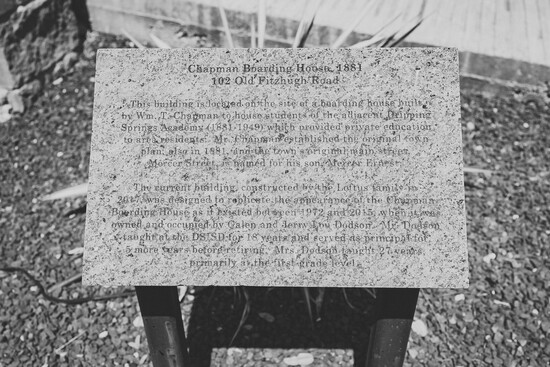 Chapman Boarding House, 1881
102 Old Fitzhugh Road
This building is located on the site of a boarding house built
by Wm. T. Chapman to house students of the adjacent Dripping
Springs Academy (1881-1949) which provided private education
to area residents. Mr. Chapman established the original town
plan, also in 1881, and the town's original main street,
Mercer Street, is named for his son, Mercer Ernest.
The current building, constructed by the Loftus family in
2017, was designed to replicate the appearance of the Chapman
Boarding House as it existed between 1972 and 2015, when it was
owned and occupied by Galen and Jerry Lou Dodson. Mr. Dodson
taught at the DSISD for 18 years and served as principal for
more years before retiring. Mrs. Dodson taught 27 years
primarily at the first-grade level.